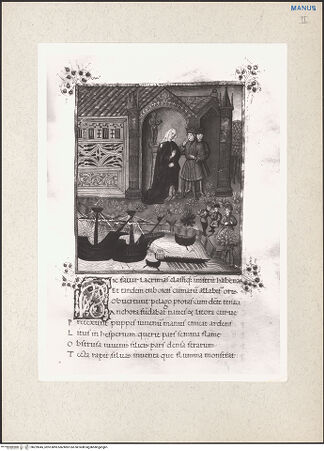 MANUS
II
Sic fatur lacrimas classiq; inmittit habenas
Et tandem euboicis cumarum allabitur oris
Obuertunt pelago proras tum dente tenaci
Anchora fundabat naues & litora curue
Pretexunt puppes iuuenum manus emicat ardens
Litus in hesperium querit pars semina flame
Abstrusa in uenis silicis pars densa ferarum
Tecta rapit siluas inuenta que flumina monstrat